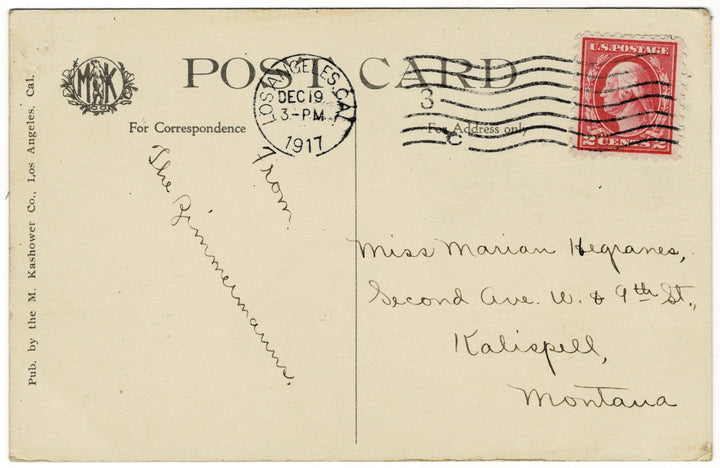 M K
POST CARD
LOS ANGELES, CAL.
DEC 19
3-PM
1917
3
C
U.S. POSTAGE
2 CENTS 2
For Correspondence
For Address only
From.
The Zimmermanns.
Miss Marian Hegranes,
Second Ave. W. & 9th St.,
Kalispell,
Montana
Pub. by the M. Kashower Co., Los Angeles, Cal.